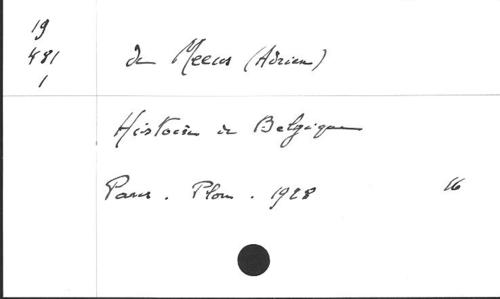 19
481
1
de Meeus (Adrien)
Histoire de Belgique
Paris. Plon. 1928
16